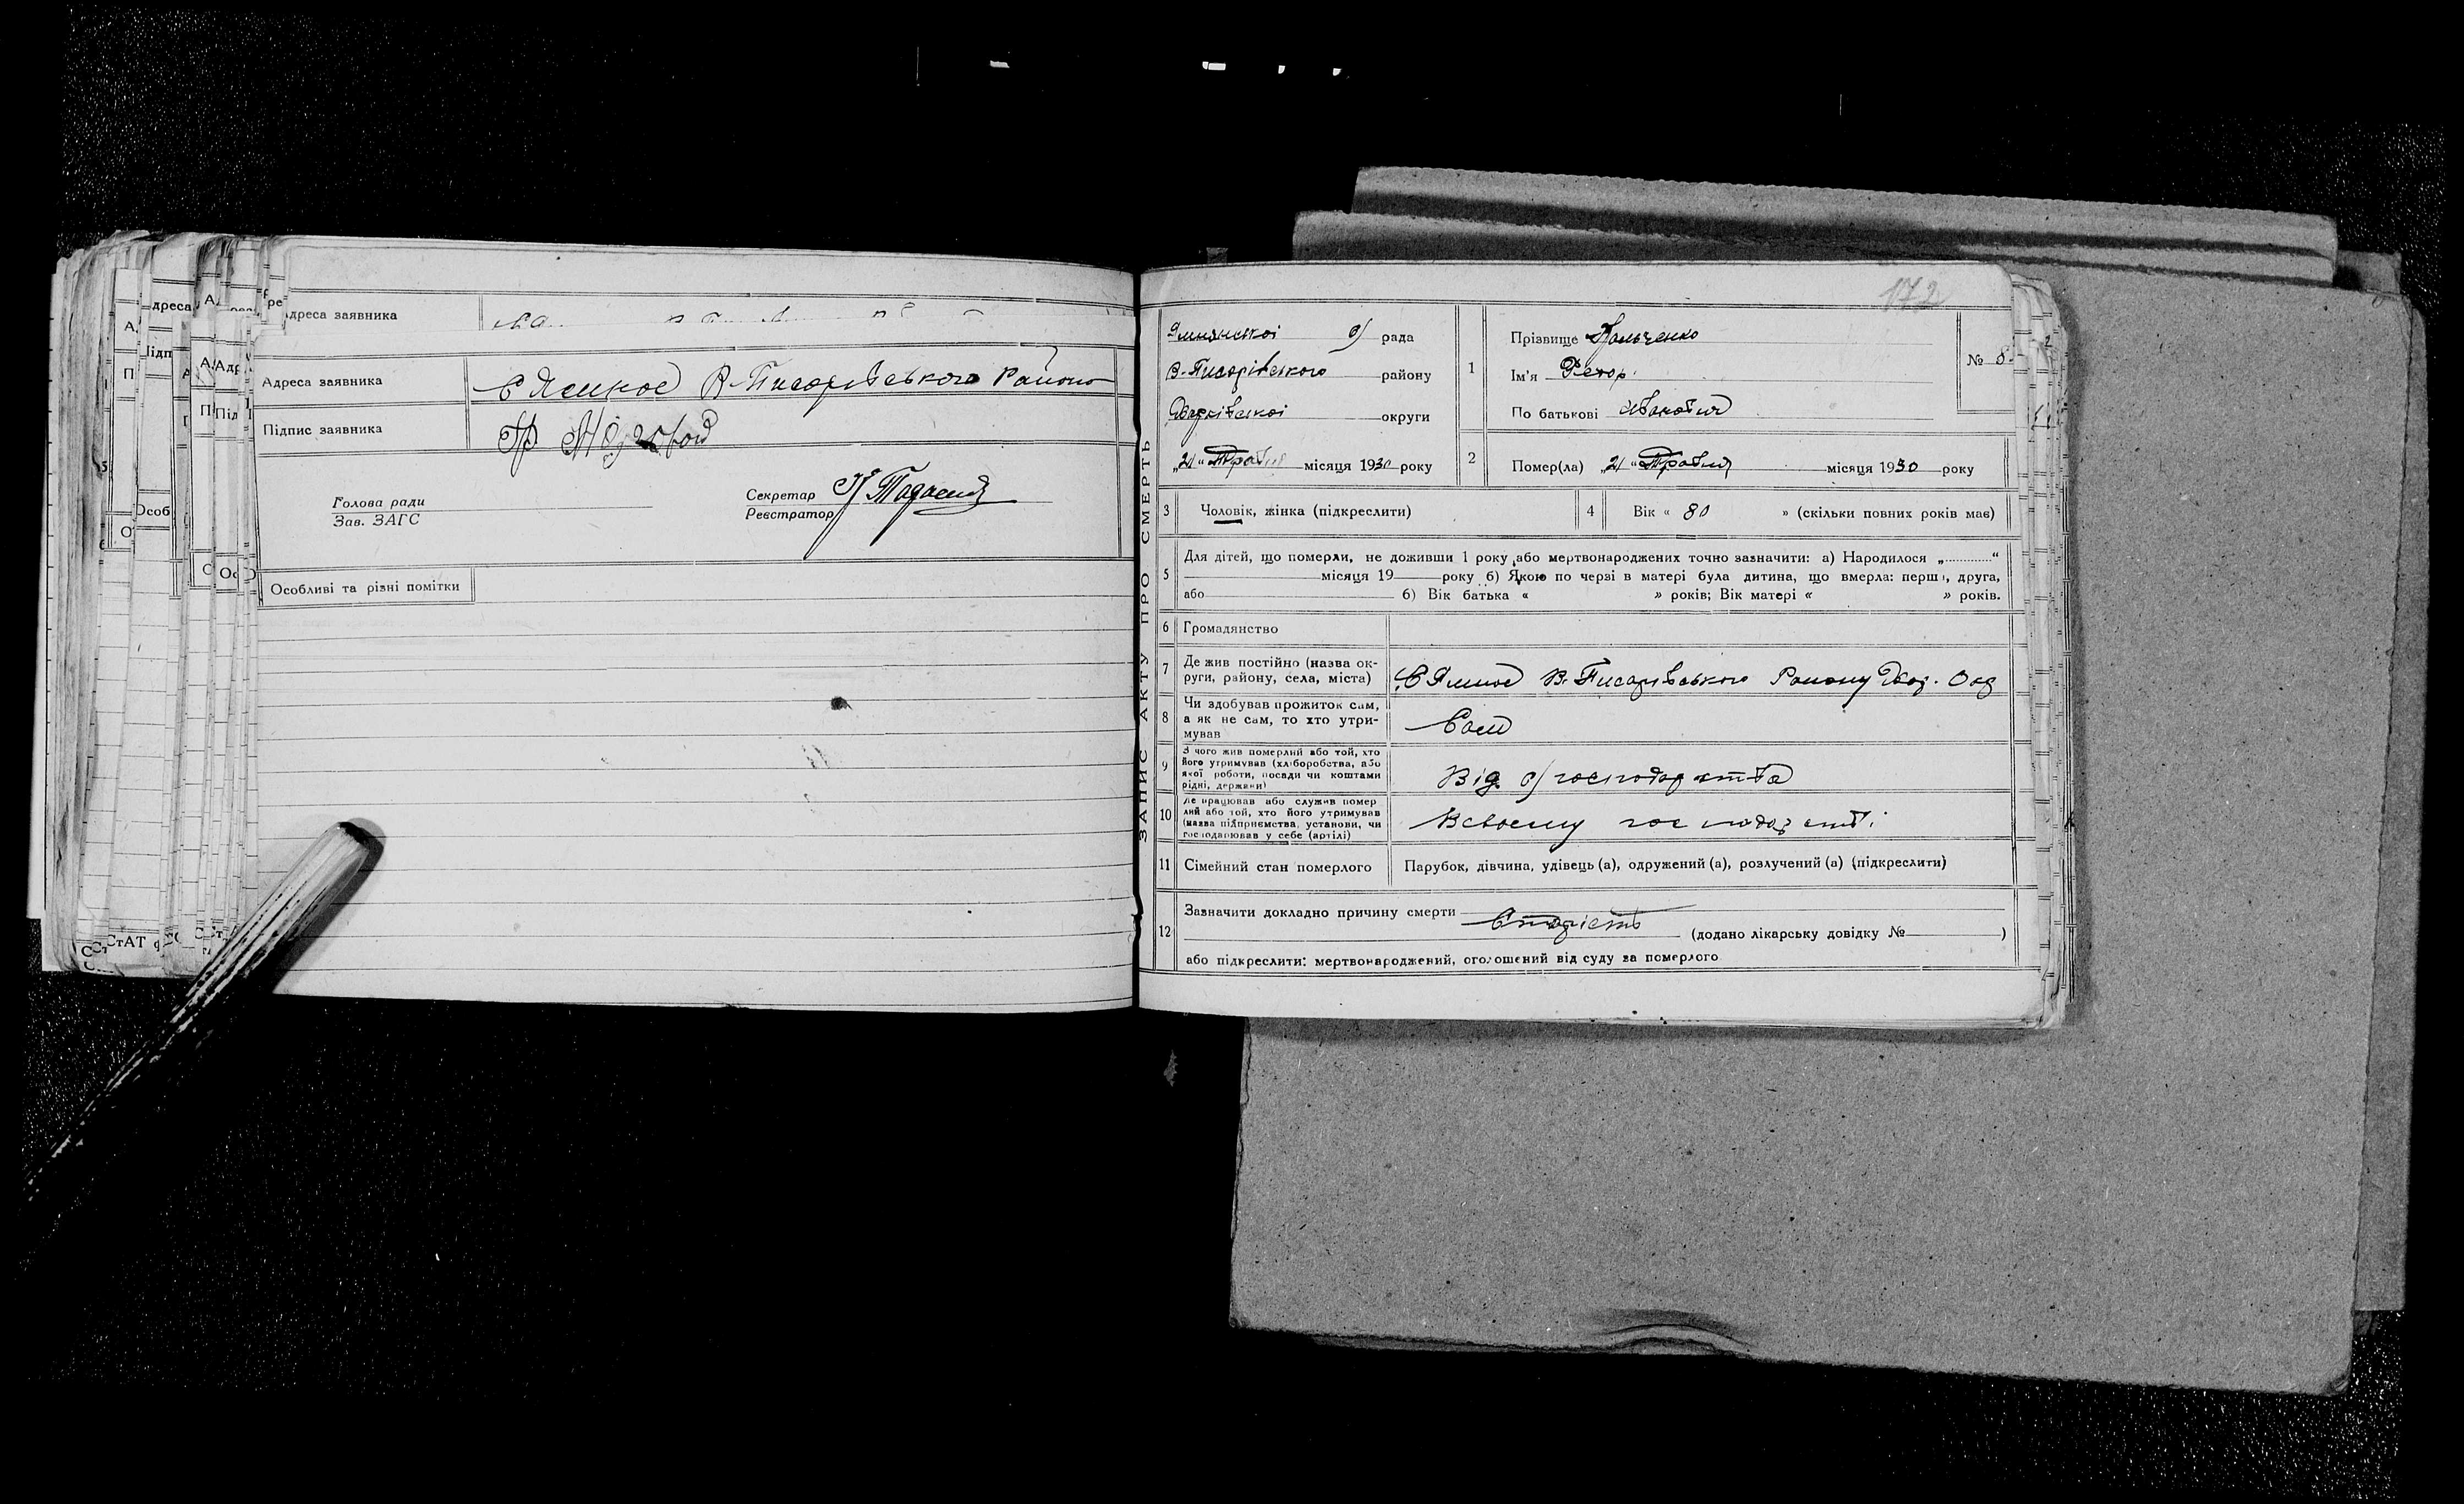 Адреса заявника
Адреса заявника С Ямное В-Писарівського Району
Підпис заявника
Голова ради
Зав. ЗАГС
Секретар
Реєстратор
Особливі та різні помітки
172
ЗАПИС АКТУ ПРО СМЕРТЬ
Ямнянської с/ рада
В-Писарівського району
Харківської округи
„21“ Травня місяця 1930 року
1 Прізвище Пальченко
Ім'я Федор
По батькові Іванович
№ 8
2 Помер(ла) „21“ Травня місяця 1930 року
3 Чоловік, жінка (підкреслити)
4 Вік « 80 » (скільки повних років має)
5 Для дітей, що померли, не доживши 1 року або мертвонароджених точно зазначити: а) Народилося „ “
місяця 19 року б) Якою по черзі в матері була дитина, що вмерла: перша, друга,
або б) Вік батька « » років; Вік матері « » років.
6 Громадянство
7 Де жив постійно (назва ок-
руги, району, села, міста) С Ямное В-Писарівського Району Хар. Окр
8 Чи здобував прожиток сам,
а як не сам, то хто утри-
мував Сам
9 З чого жив померлий або той, хто
його утримував (хліборобства, або
якої роботи, посади чи коштами
рідні, держави) Від с/господарства
10 Де працював або служив помер
лий або той, хто його утримував
(назва підприємства, установи, чи
господарював у себе (артілі) В своєму господарстві
11 Сімейний стан померлого Парубок, дівчина, удівець (а), одружений (а), розлучений (а) (підкреслити)
12 Зазначити докладно причину смерти Старість
(додано лікарську довідку № )
або підкреслити: мертвонароджений, оголошений від суду за померлого